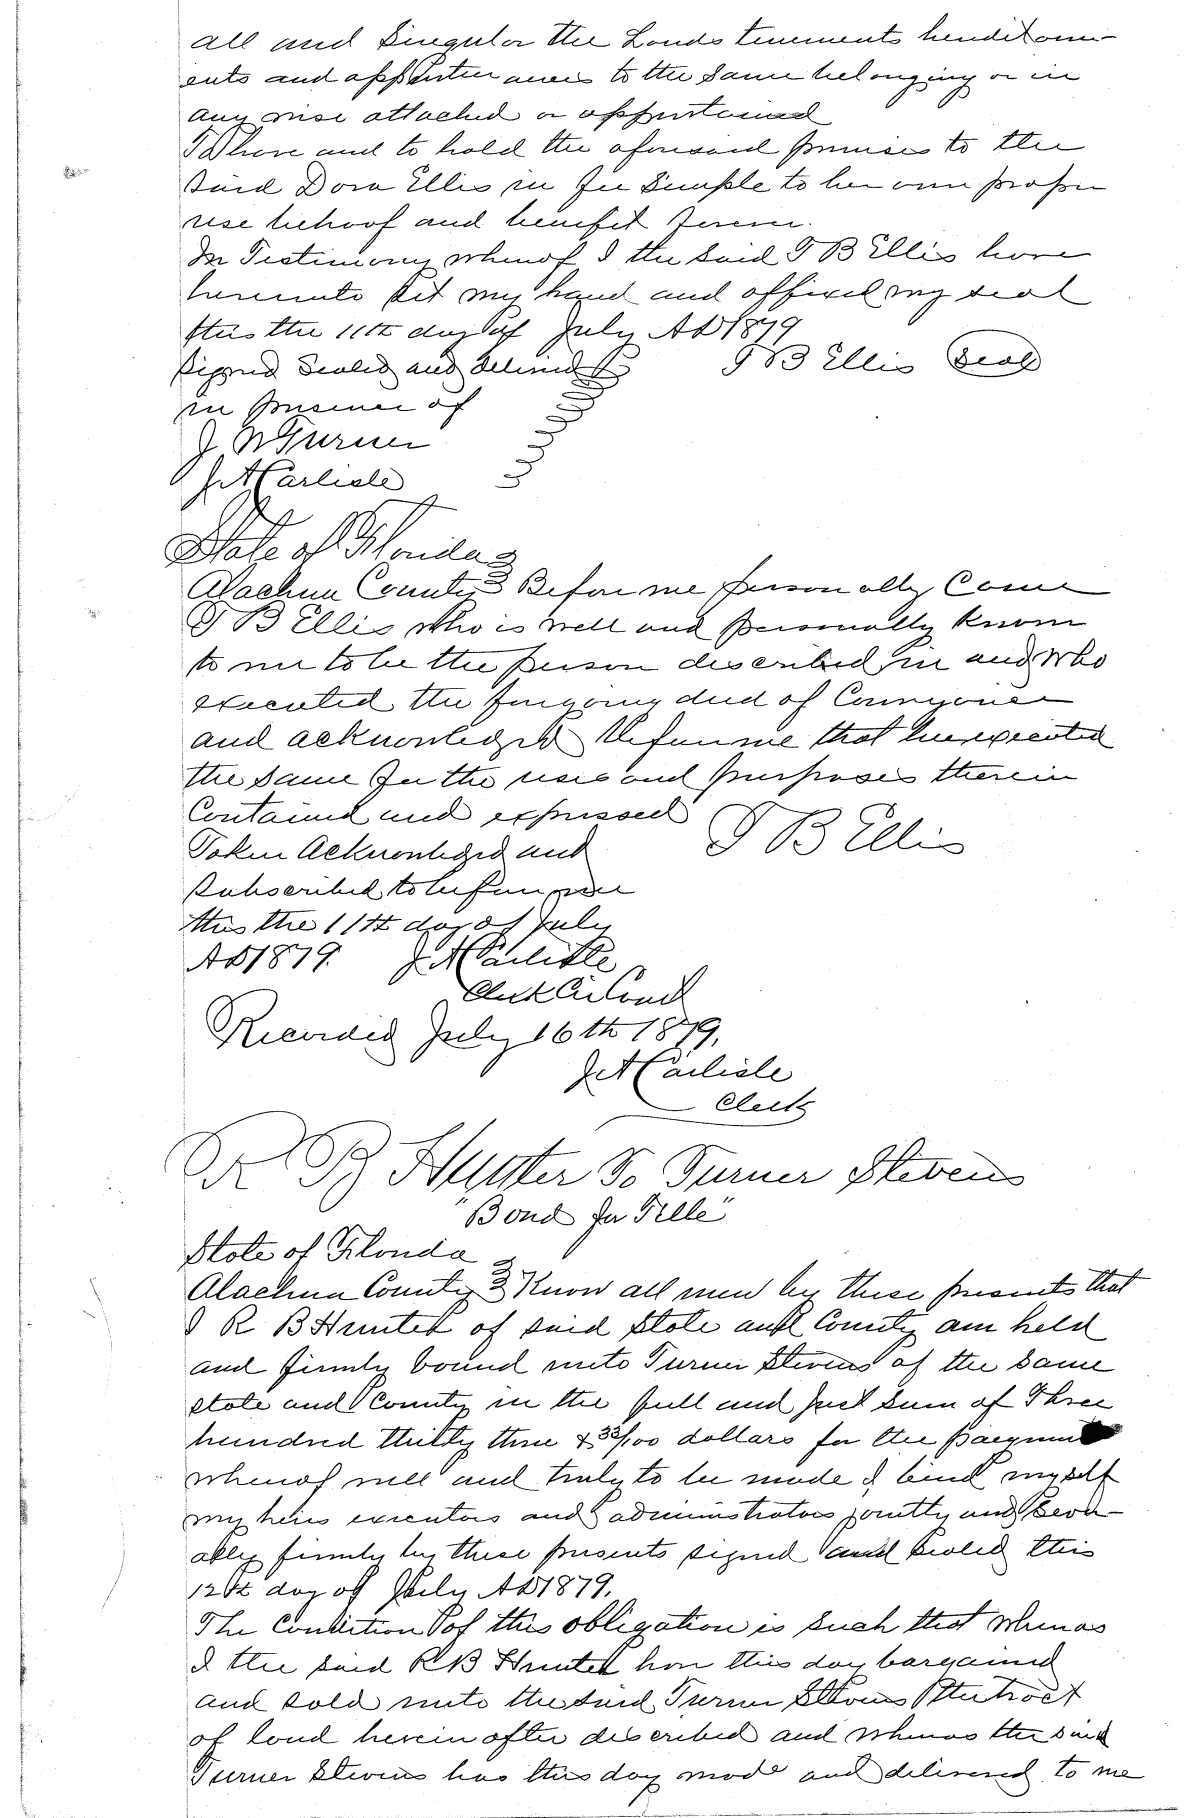 all and Singular the Lands tenements hereditam-
ents and appurtenances to the Same belonging or in
any wise attached or appertained
To Have and to hold the aforesaid premises to the
Said Dora Ellis in fee Simple to her own proper
use behoof and benefit forever.
In Testimony whereof I the Said T B Ellis have
hereunto Set my hand and affixed my seal
this the 11th day of July AD 1879
Signed Sealed and delivered T B Ellis Seal
in presence of
J W Turner
J A Carlisle
State of Florida
Alachua County Before me personally Came
T B Ellis who is well and personally known
to me to be the person described in and who
executed the foregoing deed of Conveyance
and acknowledged before me that he executed
the Same for the uses and purposes therein
Contained and expressed T B Ellis
Taken Acknowledged and
Subscribed to before me
this the 11th day of July
AD 1879. J A Carlisle
Clerk Cir Court
Recorded July 16th 1879.
J A Carlisle
Clerk
R B Hunter To Turner Stevens
"Bond for Title"
State of Florida
Alachua County Know all men by these presents that
I R B Hunter of said State and County am held
and firmly bound unto Turner Stevens of the Same
State and County in the full and Just Sum of Three
hundred thirty three & 33/100 dollars for the payment
whereof well and truly to be made I bind myself
my heirs executors and administrators jointly and Sever-
ally firmly by these presents signed and Sealed this
12th day of July AD 1879.
The Condition of this obligation is Such that whereas
I the Said R B Hunter have this day bargained
and sold unto the Said Turner Stevens the tract
of land herein after described and whereas the Said
Turner Stevens has this day made and delivered to me